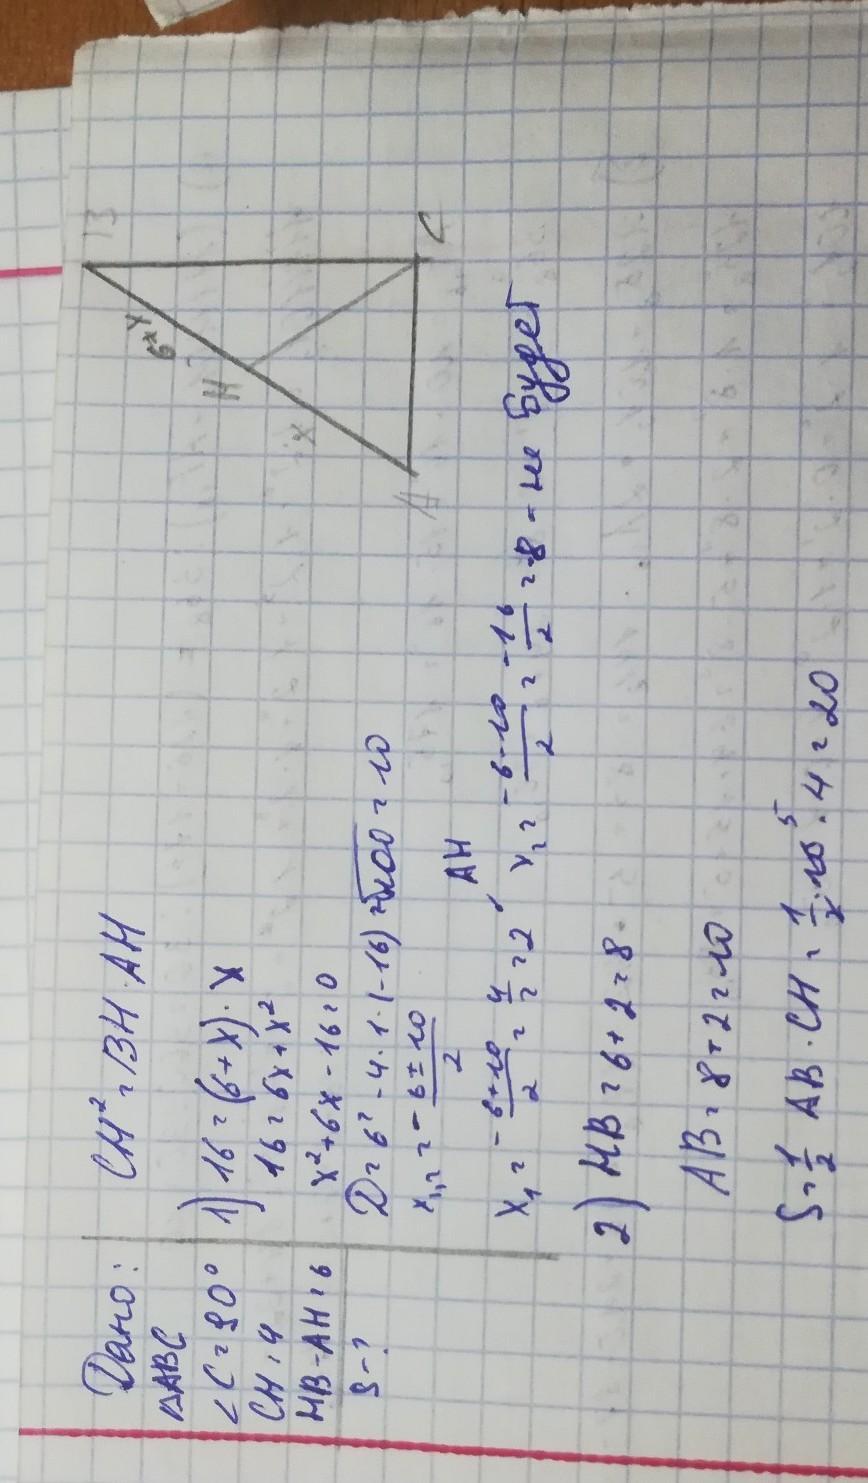 Дано:
ΔABC
∠C = 90°
CH = 4
HB - AH = 6
S - ?
CH² = BH · AH
1) 16 = (6 + x) · x
16 = 6x + x²
x² + 6x - 16 = 0
D = 6² - 4 · 1 · (-16) = √100 = 10
x₁,₂ = -6 ± 10 / 2
x₁ = -6 + 10 / 2 = 4 / 2 = 2, AH x₂ = -6 - 10 / 2 = -16 / 2 = -8 - не будет
2) HB = 6 + 2 = 8
AB = 8 + 2 = 10
S = 1/2 AB · CH = 1/2 · 10 5 · 4 = 20
B
H
x
A
C